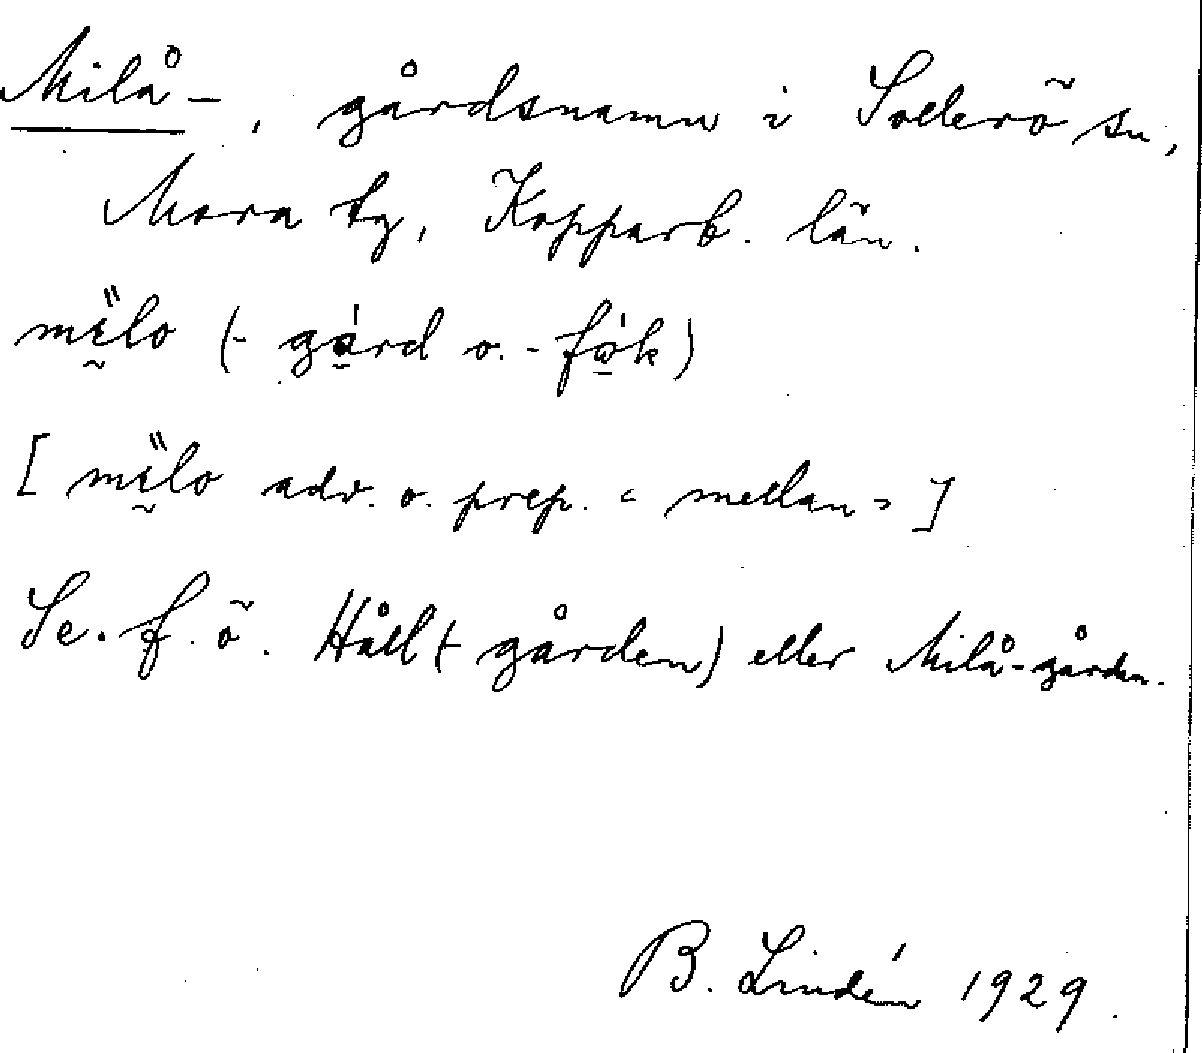 Milå-, gårdsnamn i Sollerö sn,
Mora tg, Kopparb. län.
mḭ̋lo (-gá̱rd o. -fó̱k)
[mḭ̋lo adv. o. prep. = mellan =]
Se. f. ö. Håll(-gården) eller Milå-gården.
B. Lindén 1929.